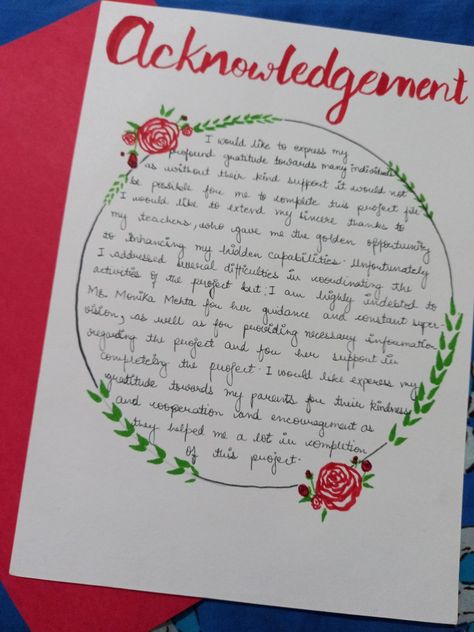 Acknowledgement
I would like to express my
profound gratitude towards many individuals
as without their kind support it would not
be possible for me to complete this project file.
I would like to extend my sincere thanks to
my teachers, who gave me the golden opportunity
to enhancing my hidden capabilities. Unfortunately
I addressed several difficulties in coordinating the
activities of the project but; I am highly indebted to
Ms. Monika Mehta for her guidance and constant super-
vision, as well as for providing necessary information
regarding the project and for her support in
completeing the project. I would like express my
gratitude towards my parents for their kindness
and cooperation and encouragement as
they helped me a lot in completion
of this project.